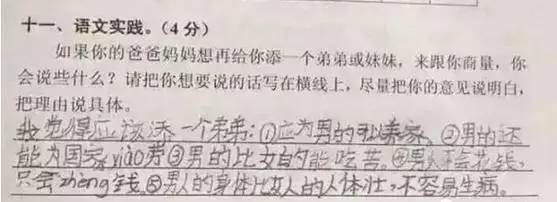 十一、语文实践。(4分)
如果你的爸爸妈妈想再给你添一个弟弟或妹妹,来跟你商量,你
会说些什么?请把你想要说的话写在横线上,尽量把你的意见说明白,
把理由说具体。
我觉得应该添一个弟弟:①应为男的孙养家。②男的还
能为国家xiào劳③男的比女的能吃苦。④男人不会花钱,
只会zhèng钱。⑤男人的身体比女人的人体壮,不容易生病。